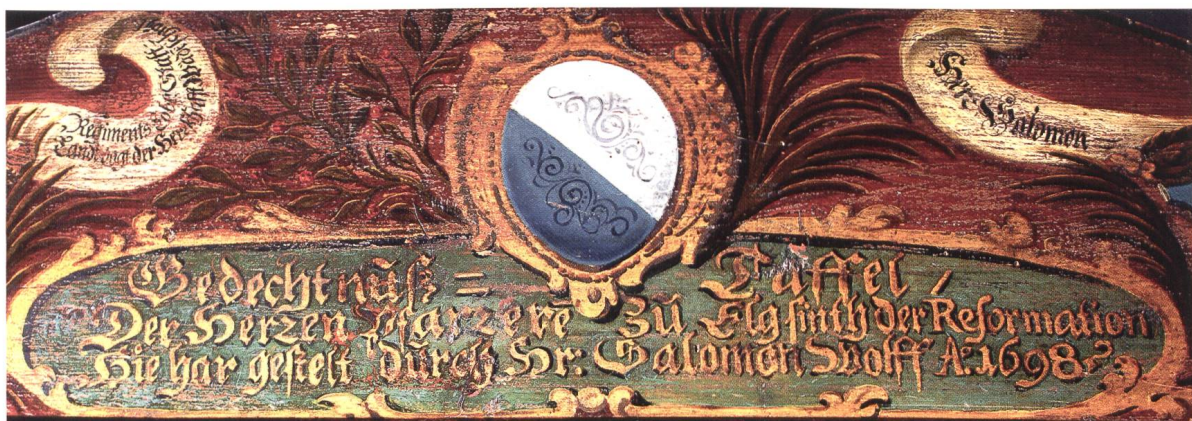 Regiments
Landtvogt der Herrschafft
Herr Salomon
Gedechtnůß = Taffel
Der Herren Pfarrerē Zů Elg sinth der Reformation
Hie har gestelt důrch Hr: Salomon Wolff Aº. 1698